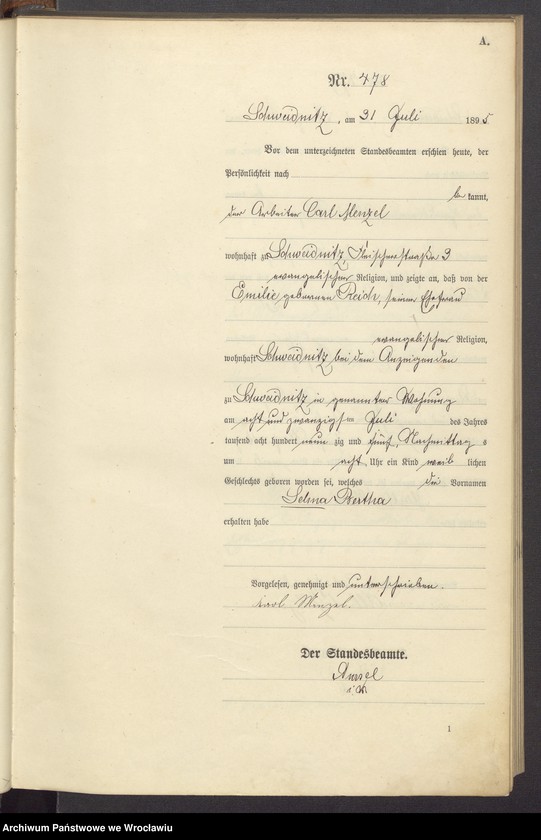 A.
Nr. 478
Schweidnitz, am 31 Juli 1895
Vor dem unterzeichneten Standesbeamten erschien heute, der
Persönlichkeit nach
be kannt,
der Arbeiter Carl Menzel
wohnhaft zu Schweidnitz, Fleischerstraße 3
evangelischer Religion, und zeigte an, daß von der
Emilie geborenen Reich, seiner Ehefrau
evangelischer Religion,
wohnhaft Schweidnitz bei dem Anzeigenden
zu Schweidnitz in genannter Wohnung
am acht und zwanzigsten Juli des Jahres
tausend acht hundert neun zig und fünf, Nachmittag s
um acht Uhr ein Kind weib lichen
Geschlechts geboren worden sei, welches die Vornamen
Selma Bertha
erhalten habe
Vorgelesen, genehmigt und unterschrieben.
Carl Menzel.
Der Standesbeamte.
1
Archiwum Państwowe we Wrocławiu